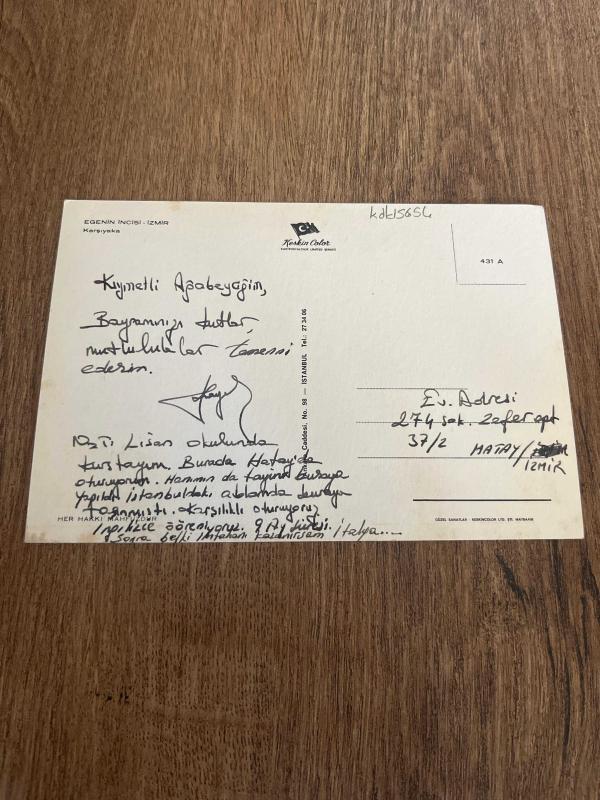 EGENİN İNCİSİ - İZMİR
Karşıyaka
Keskin Color
kdk15654
431 A
Kıymetli Ağabeyağim,
Bayramınızı kutlar,
mutluluklar temenni
ederim.
Caddesi, No. 98 — İSTANBUL Tel.: 27 34 06
Ev. Adresi
274 sok. Zafer apt
37/2 HATAY/
İZMİR
Lisan okulunda
kurstayım. Burada Hatay'da
oturuyorum. Hanımın da tayini buraya
yapıldı İstanbuldaki ablamda buraya
taşınmıştı. Karşılıklı oturuyoruz
HER HAKKI MAHFUZDUR
İngilizce öğreniyoruz. 9 Ay süresi.
Sonra belki imtahanı kazanırsam İtalya....
GÜZEL SANATLAR - KESKİNCOLOR LTD. ŞTİ. MATBAASI